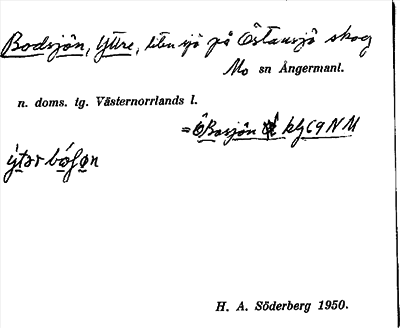 Bodsjön, Yttre, liten sjö på Östansjö skog
Mo sn Ångermanl.
n. doms. tg. Västernorrlands l.
= Ö Bosjön klg C9 NM
ýtər bósøn
H. A. Söderberg 1950.